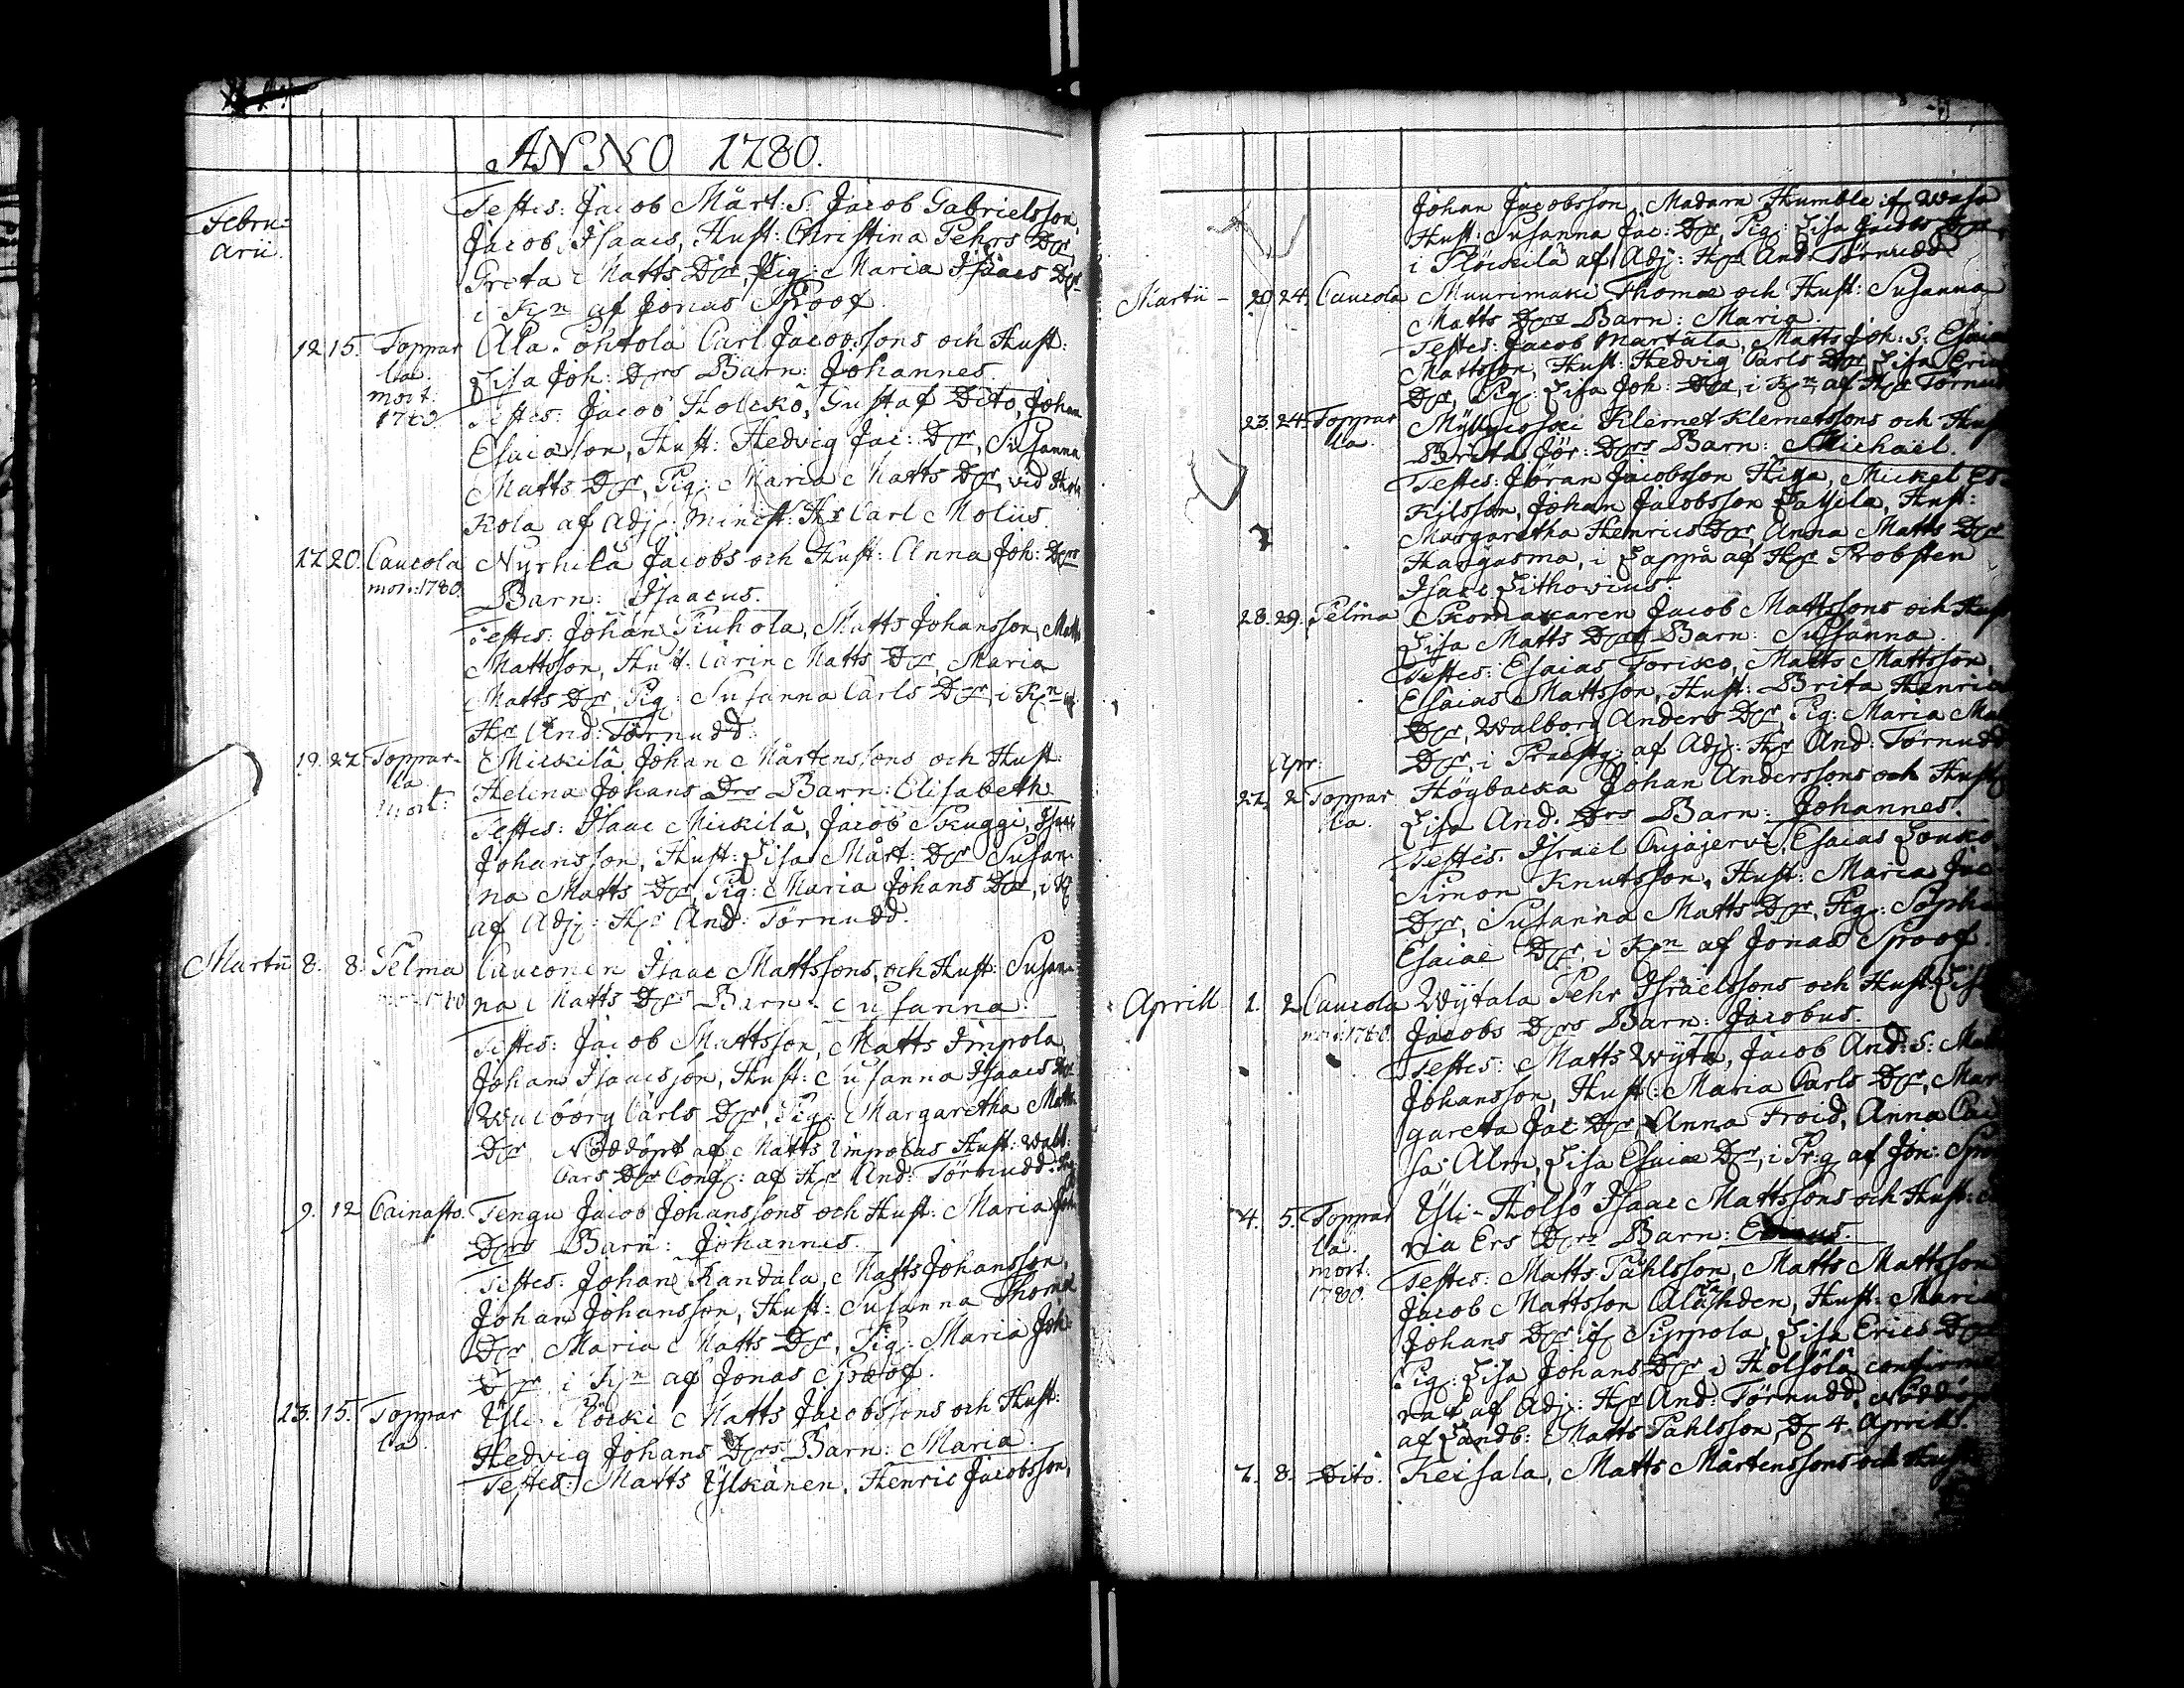 ANNO 1780.
Febru=
arii.
Testes: Jacob Mårt: S. Jacob Gabrielsson,
Jacob Isaacs, Hust: Christina Pehrs Dr,
Greta Matts Dr, Pig: Maria Isaacs Dr
i Kn af Jonas Proof.
12. 15. Toppar Ala-Pohtola Carl Jacobssons och Hust:
la. Lisa Joh: Drs Barn: Johannes
mort: 1780. Testes: Jacob Holckö, Gustaf Dito, Johan
Esaiasson, Hust: Hedvig Jac: Dr, Susanna
Matts Dr, Pig: Maria Matts Dr, vid
kola af Adj: Minist: Hr Carl Moliis.
17. 20. Caucola Nyrhilä Jacobs och Hust: Anna Joh: Drs
mort: 1780. Barn: Isaacus.
Testes: Johan Piuhola, Matts Johansson, Matts
Mattsson, Hust: Carin Matts Dr, Maria
Matts Dr, Pig: Susanna Carls Dr, i Kn af
Hr And: Törnudd.
19. 27. Toppar- Mickilä Johan Mårtenssons och Hust:
la. Helena Johans Drs Barn: Elisabeth
mort: Testes: Isaac Mickilä, Jacob Skuggi, Isaac
Johansson, Hust: Lisa Mårt: Dr Susan-
na Matts Dr, Pig: Maria Johans Dr, i K
af Adj: Hr And: Törnudd.
Martii 8. 8. Pelma Cauconen Isaac Mattssons, och Hust: Susan-
na Matts Drs Barn: Susanna.
Testes: Jacob Mattsson, Matts Impola,
Johan Isaacsson, Hust: Susanna Isaacs Dr
Walborg Carls Dr, Pig: Margaretha Matts
Dr. Nöddöpt af Matts Impolas Hust: Walb:
Cars Dr Conf: af Hr And: Törnudd.
9. 12 Cainasto. Tengu Jacob Johanssons och Hust: Maria Joh:
Drs Barn: Johannes.
Testes: Johan Randala, Matts Johansson,
Johan Johansson, Hust: Susanna Thomæ
Dr, Maria Matts Dr, Pig: Maria Joh:
Dr i Kn af Jonas Proof.
13. 15. Toppar Yli-Plöcki Matts Jacobssons och Hust:
la. Hedvig Johans Drs Barn: Maria.
Testes: Matts Ylkänen, Henric Jacobsson,
Johan Jacobsson, Madam Humble if Wasa
Hust: Susanna Jac: Dr, Pig: Lisa Jacobs Dr,
i Plöckilä af Adj: Hr And: Törnudd
Martii - 20. 24. Caucola Muurimäki Thomæ och Hust: Susanna
Matts Drs Barn: Maria.
Testes: Jacob Martala, Matts Joh: S. Esaias
Mattsson, Hust: Hedvig Carls Dr, Lisa Erics
Dr, Pig: Lisa Joh: Dr, i Kn, af Hr Törnu
23. 24. Toppar Klemet Klemetssons och Hust
la. Brita Jör: Drs Barn: Michaël.
Testes: Jöran Jacobsson Hissa, Mickel Es-
kilsson, Johan Jacobsson Hust:
Margaretha Henrics Dr, Anna Matts Dr
Hargasma, i Lappå af Hr Probsten
Isaac Lithovius.
28. 29. Pelma Skomakaren Jacob Mattssons och Hust
Lisa Matts Drs Barn: Susanna.
Testes: Esaias Torisko, Matts Mattsson,
Esaias Mattsson, Hust: Brita Henrics
Dr, Walborg Anders Dr, Pig: Maria Mat
Dr, i Præstg: af Adj: Hr And: Törnudd
Apr:
27. 2 Toppar Högbacka Johan Anderssons och Hust
la. Lisa And. Drs Barn: Johannes.
Testes. Israel Oujajervi, Esaias Louko
Simon Knutsson, Hust: Maria Jac
Dr, Susanna Matts Dr, Pig: Sophia
Esaiæ Dr, i Kn af Jonas Proof.
Aprill 1. 2 Caucola Wÿtala Pehr Israelssons och Hust: Lisa
mort: 1780. Jacobs Drs Barn: Jacobus.
Testes: Matts Wÿta, Jacob And: S: Matts
Johansson, Hust: Maria Carls Dr, Mar
gareta Jac: Dr, Anna Froid, Anna Cai
sa Alm, Lisa Esaiæ Dr, i Pr:g af Jon: Pro
4. 5. Toppar Yli-Holsö Isaac Mattssons och Hust:
la. ria Ers Drs Barn:
mort: Testes: Matts Påhlsson, Matts Mattsson
1780. Jacob Mattsson Hust: Maria
Johans Dr if Sippola, Lisa Erics Dr
Pig: Lisa Johans Dr i Holsölä confirme
rat af Adj: Hr And: Törnudd, Nöddöpt
af Landb: Matts Påhlsson, D 4. Aprill.
7. 8. Dito. Keisala, Matts Mårtenssons och Hust: